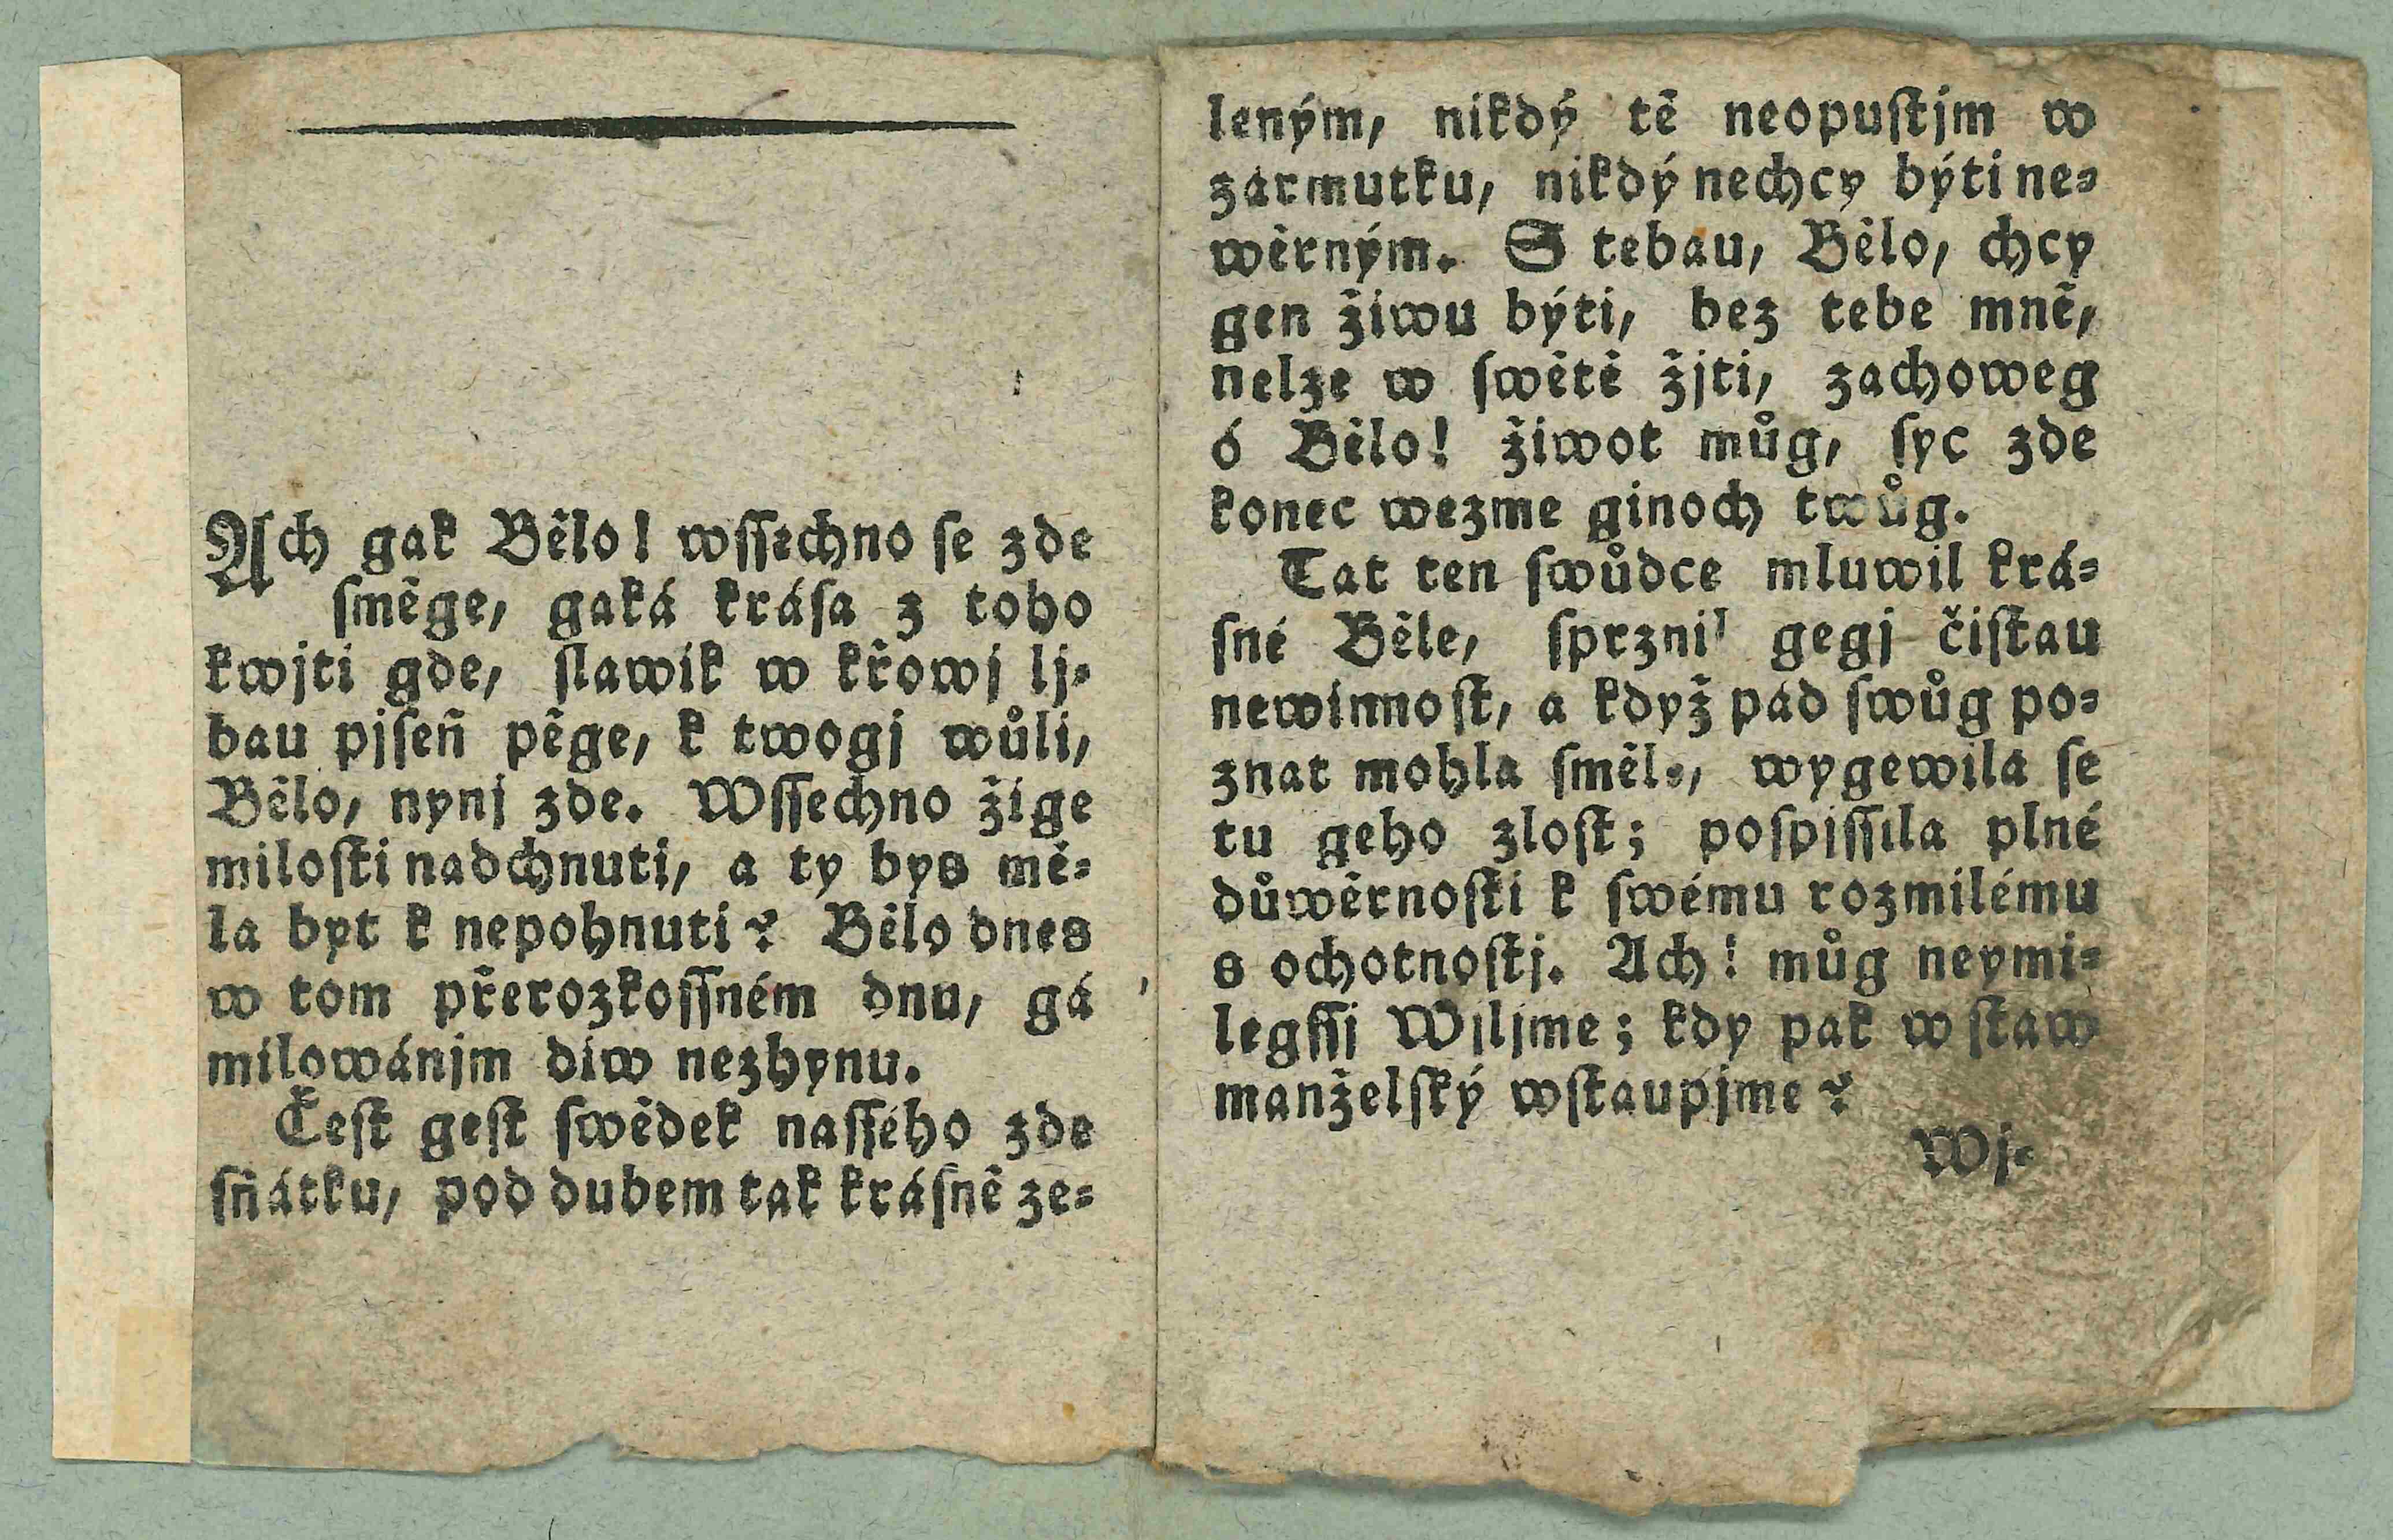 Ach gak Bělo! wſſechno ſe zde
ſměge, gaká kráſa z toho
kwjti gde, ſlawik w křowj lj-
bau pjſeň pěge, k twogj wůli,
Bělo, nynj zde. Wſſechno žige
miloſti nadchnuti, a ty bys mě-
la byt k nepohnuti? Bělo dnes
w tom přerozkoſſném dnu, gá
milowánjm diw nezhynu.
Čeſt geſt ſwědek naſſého zde
ſňátku, pod dubem tak kráſně ze-
leným, nikdý tě neopuſtjm w
zármutku, nikdý nechcy býti ne-
wěrným. S tebau, Bělo, chcy
gen žiwu býti, bez tebe mně,
nelze w ſwětě žjti, zachoweg
ó Bělo! žiwot můg, ſyc zde
konec wezme ginoch twůg.
Tat ten ſwůdce mluwil krá-
ſné Běle, ſprznil gegj čiſtau
newinnoſt, a když pád ſwůg po-
znat mohla ſměl., wygewila ſe
tu geho zloſt; poſpiſſila plné
důwěrnoſti k ſwému rozmilému
s ochotnoſtj. Ach! můg neymi-
legſſj Wiljme; kdy pak w ſtaw
manželſký wſtaupjme?
Wj-